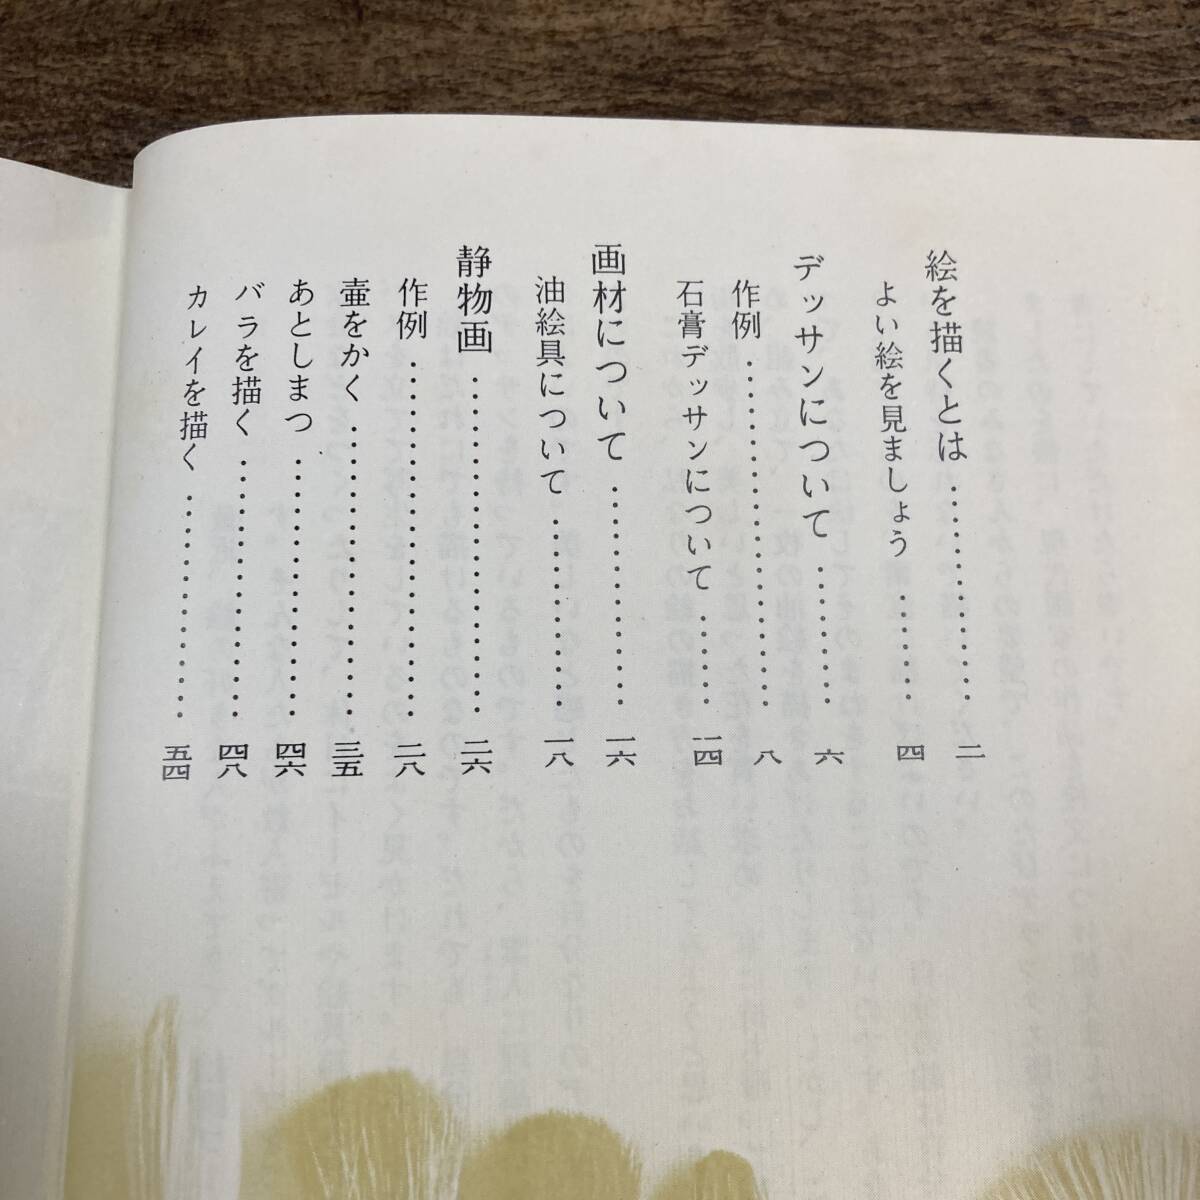 絵を描くとは……………二
よい絵を見ましょう……………四
デッサンについて……………六
作例……………八
石膏デッサンについて……………一四
画材について……………一六
油絵具について……………一八
静物画……………二六
作例……………二八
壷をかく……………三五
あとしまつ……………四六
バラを描く……………四八
カレイを描く……………五四